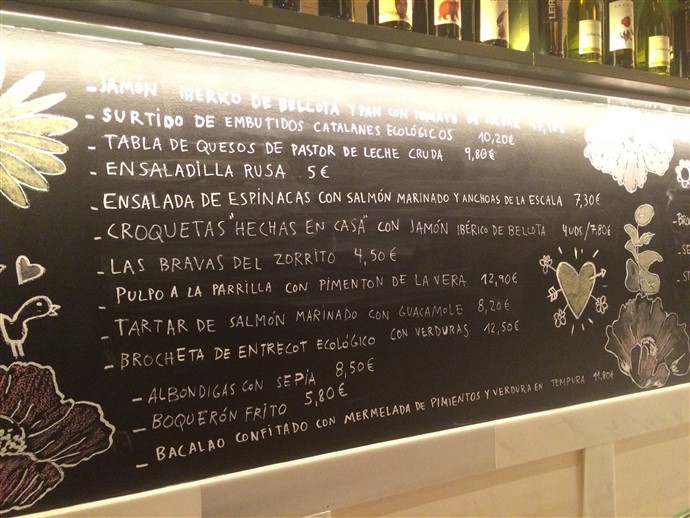 - JAMÓN IBÉRICO DE BELLOTA Y PAN CON TOMATE DE
- SURTIDO DE EMBUTIDOS CATALANES ECOLÓGICOS 10,20€
- TABLA DE QUESOS DE PASTOR DE LECHE CRUDA 9,80€
- ENSALADILLA RUSA 5€
- ENSALADA DE ESPINACAS CON SALMÓN MARINADO Y ANCHOAS DE LA ESCALA 7,30€
- CROQUETAS "HECHAS EN CASA" CON JAMÓN IBÉRICO DE BELLOTA 4UDS/7.80€
- LAS BRAVAS DEL ZORRITO 4,50€
PULPO A LA PARRILLA CON PIMENTON DE LA VERA 12,90€
- TARTAR DE SALMÓN MARINADO CON GUACAMOLE 8,20€
- BROCHETA DE ENTRECOT ECOLÓGICO CON VERDURAS 12,50€
- ALBONDIGAS CON SEPIA 8,50€
- BOQUERÓN FRITO 5,80€
- BACALAO CONFITADO CON MERMELADA DE PIMIENTOS Y VERDURA EN TEMPURA 11.80€